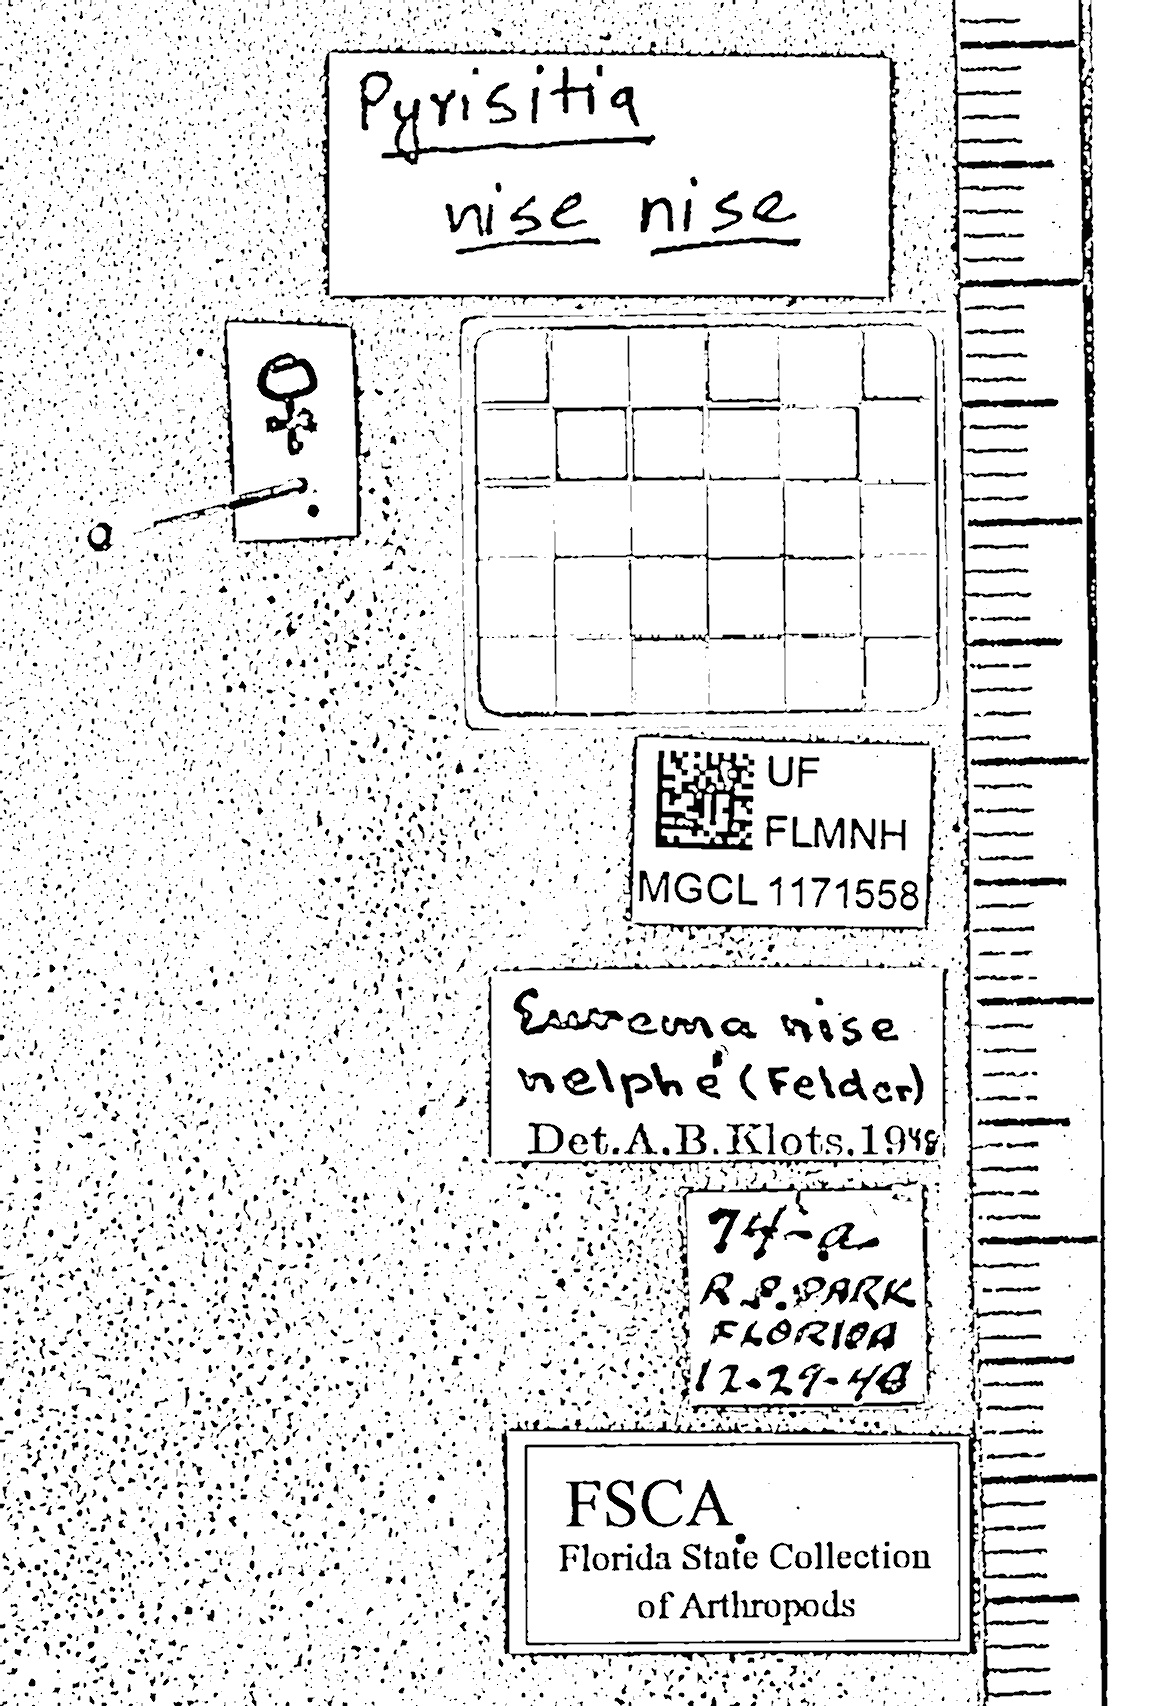 Pyrisitia
nise nise
♀
UF
FLMNH
MGCL 1171558
Eurema nise
nelphe (Felder)
Det.A.B.Klots.1948
74-a
R.P. PARK
FLORIDA
12-29-48
FSCA
Florida State Collection
of Arthropods